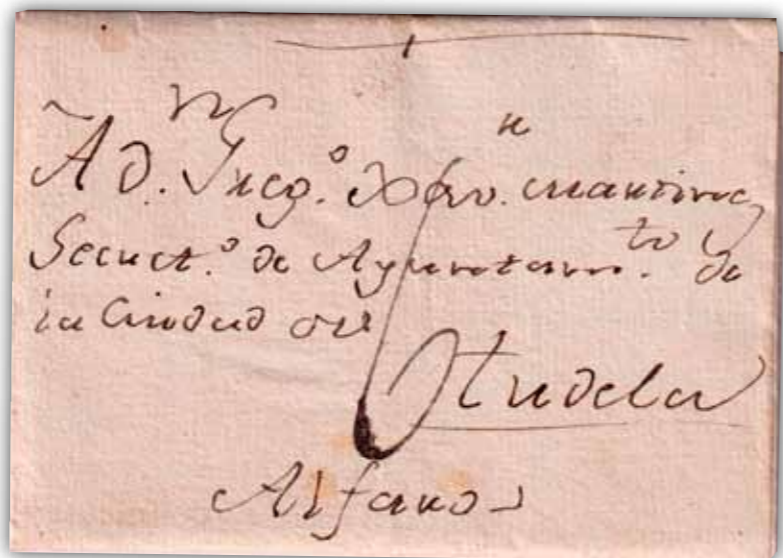 A Dn. Greg.º Martinez
Secret.º de Ayuntam.to de
la Ciudad de
Tudela
6
Alfaro